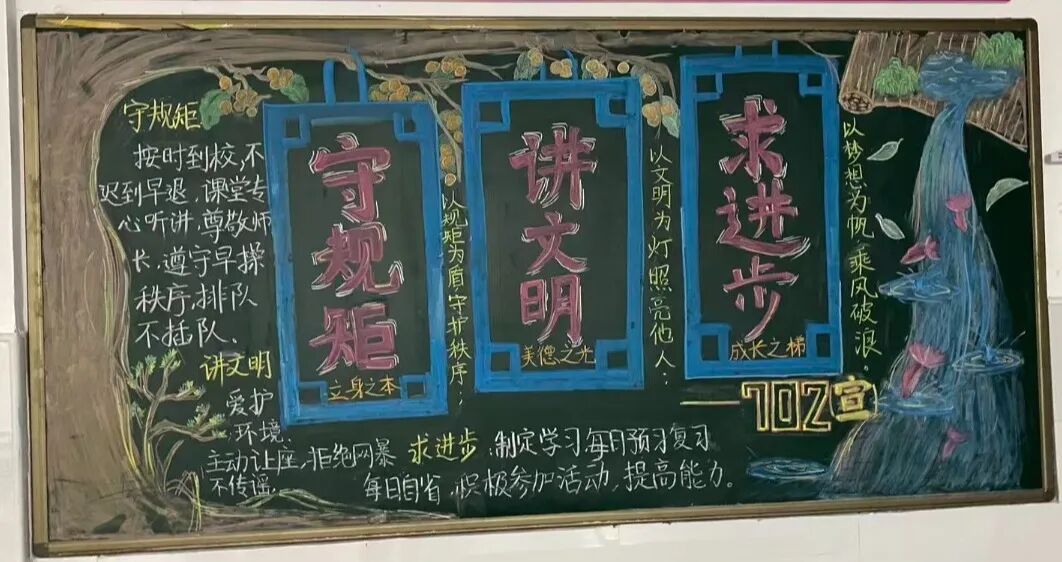 守规矩
按时到校,不
迟到早退,课堂专
心听讲,尊敬师
长,遵守早操
秩序,排队
不插队。
讲文明
爱护
环境,
主动让座,拒绝网暴
不传谣,
守规矩
立身之本
以规矩为盾,守护秩序;
讲文明
美德之光
以文明为灯照亮他人;
求进步
成长之梯
以梦想为帆乘风破浪。
——702宣
求进步,制定学习,每日预习复习
每日自省,积极参加活动,提高能力。